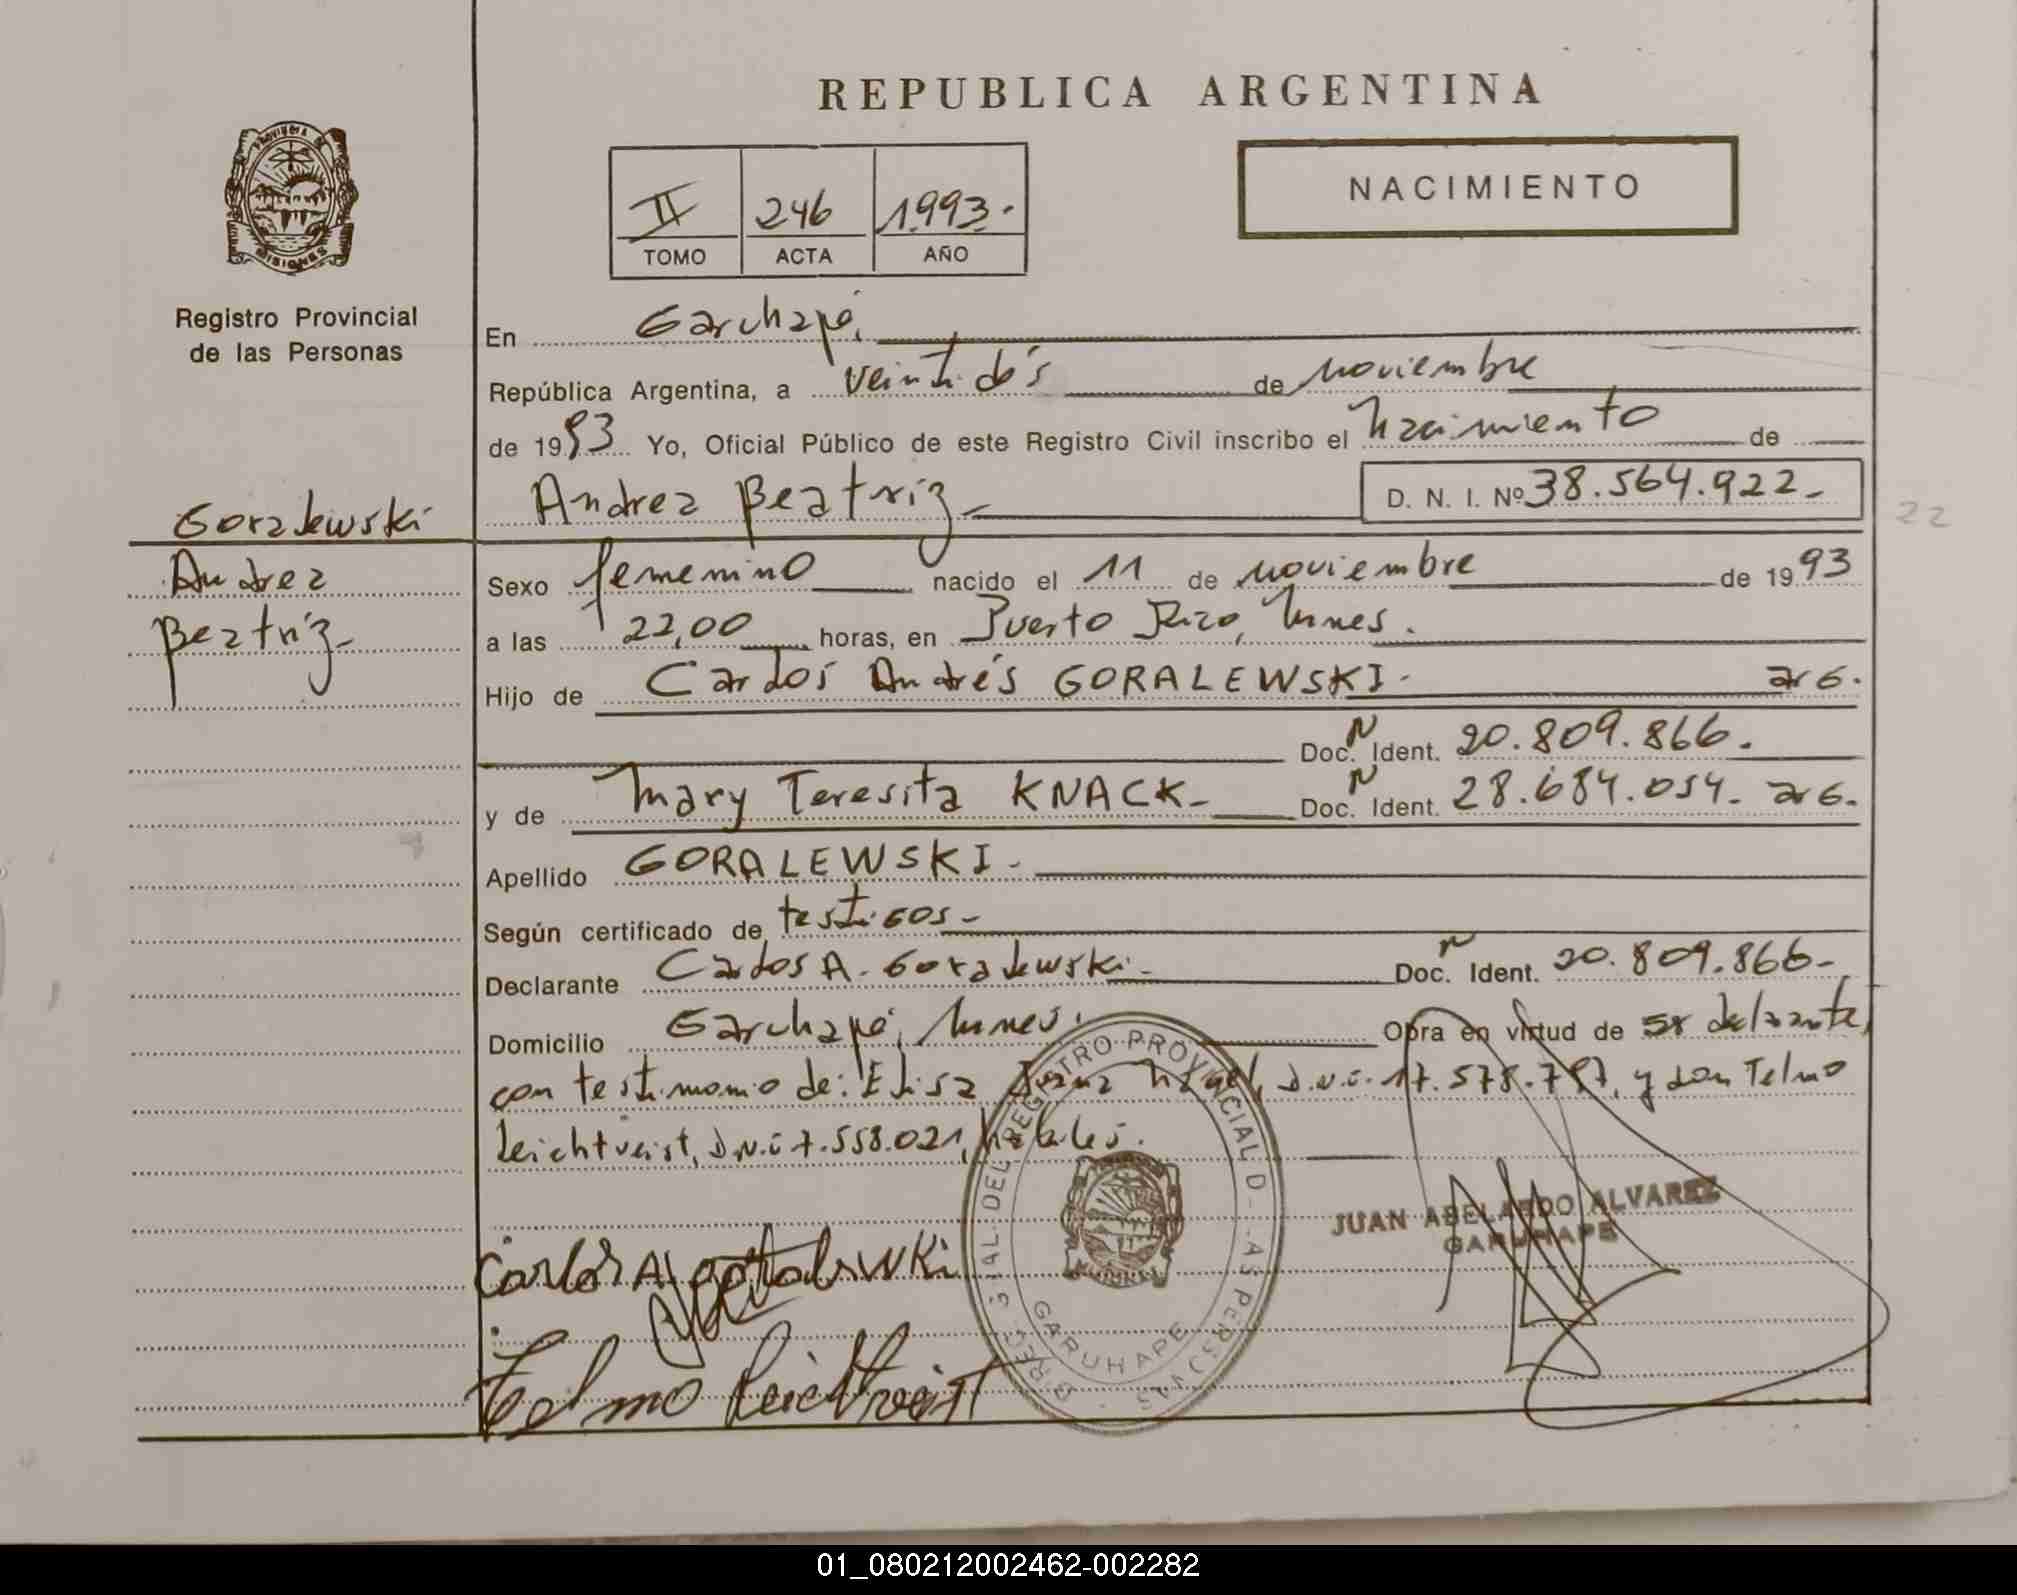 REPUBLICA ARGENTINA
PROVINCIA DE
MISIONES
Registro Provincial
de las Personas
II 246 1.993.
TOMO ACTA AÑO
NACIMIENTO
En Garuhapé,
República Argentina, a veintidós de noviembre
de 1993 Yo, Oficial Público de este Registro Civil inscribo el nacimiento de
Andrea Beatriz - D. N. I. Nº 38.564.922-
Goralewski
Andrea
Beatriz-
22
Sexo femenino nacido el 11 de noviembre de 1993
a las 22,00 horas, en Puerto Rico, Mnes.
Hijo de Carlos Andrés GORALEWSKI. arg.
Doc. N Ident. 20.809.866.
y de Mary Teresita KNACK- Doc. N Ident. 28.684.054. arg.
Apellido GORALEWSKI.
Según certificado de testigos-
Declarante Carlos A. Goralewski- Doc. N Ident. 20.809.866-
Domicilio Garuhapé, Mnes. Obra en virtud de ser declarante,
con testimonio de: Elisa Juana D.N.I. 17.578.797, y don Telmo
Leichtveist, D.N.I 7.558.021, hábiles.
REGISTRO PROVINCIAL D LAS PERSONAS
GARUHAPE
JUAN ABELARDO ALVAREZ
GARUHAPE
Carlos A Goralewski
Telmo Leichtveist
01_080212002462-002282